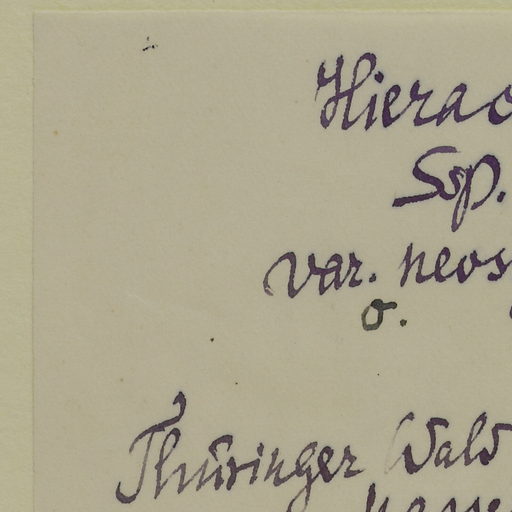 Hierac
Ssp.
var. neos
o.
Thüringer Wald